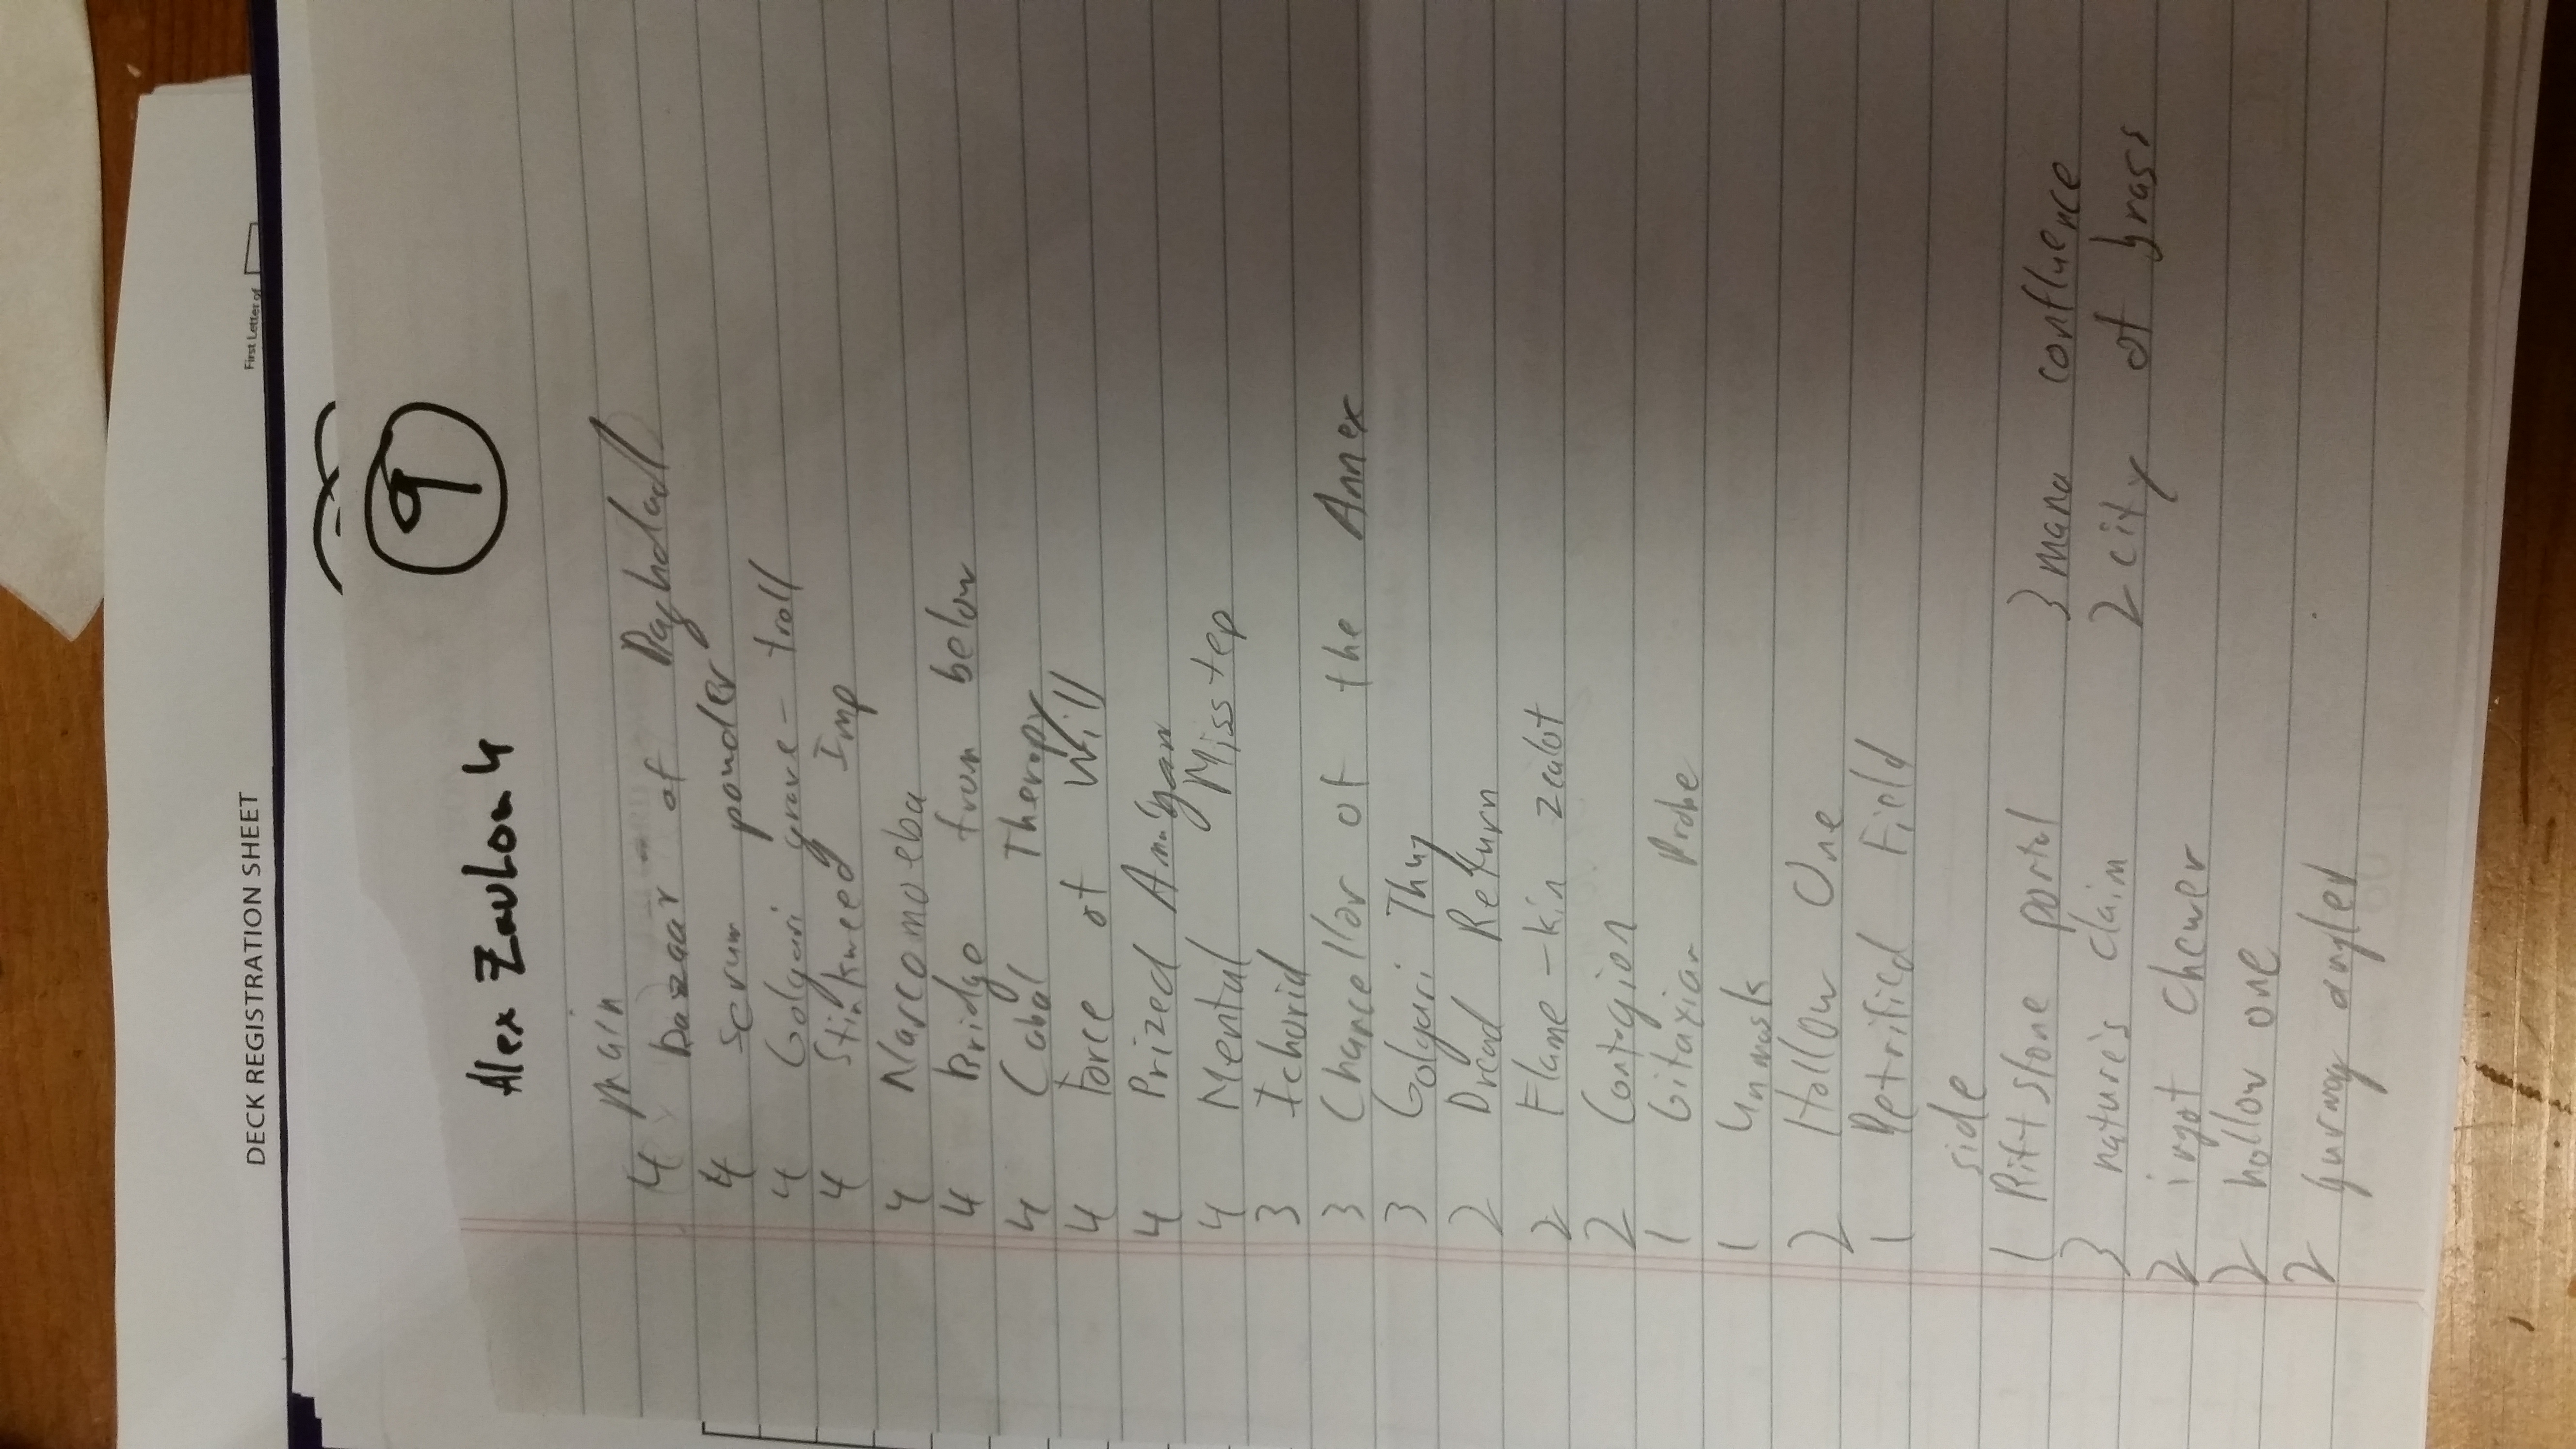 DECK REGISTRATION SHEET
First Letter of
9
Alex
main
4 bazaar of Baghdad
4 serum powder
4 Golgari grave-troll
4 Stinkweed Imp
4 Narcomoeba
4 Bridge from below
4 Cabal Therapy
4 Force of Will
4 Prized
4 Mental Misstep
3 Ichorid
3 Chancellor of the Annex
3 Golgari Thug
2 Dread Return
2 Flame-kin zealot
2 Contagion
1 Gitaxian Probe
1 Unmask
2 Hollow One
1 Petrified Field
side
1 Riftstone portal
3 nature's claim
2 ingot chewer
2 hollow one
2 gurmag angler
3 mana confluence
2 city of brass